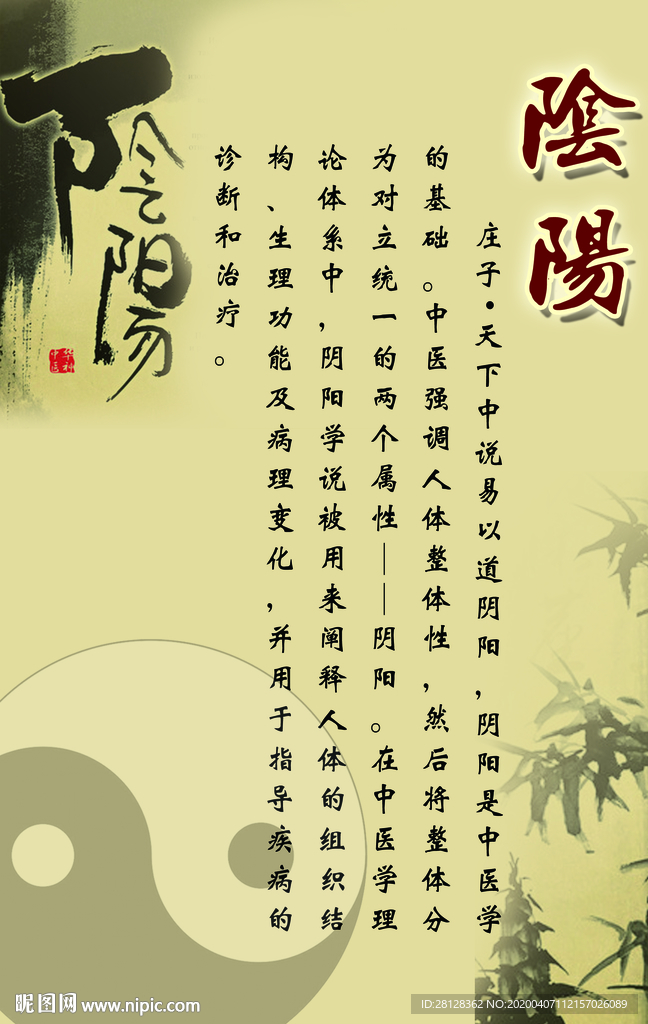 陰陽
庄子·天下中说易以道阴阳，阴阳是中医学
的基础。中医强调人体整体性，然后将整体分
为对立统一的两个属性——阴阳。在中医学理
论体系中，阴阳学说被用来阐释人体的组织结
构、生理功能及病理变化，并用于指导疾病的
诊断和治疗。
陰陽
华神
中医
昵图网 www.nipic.com
ID:28128362 NO:20200407112157026089